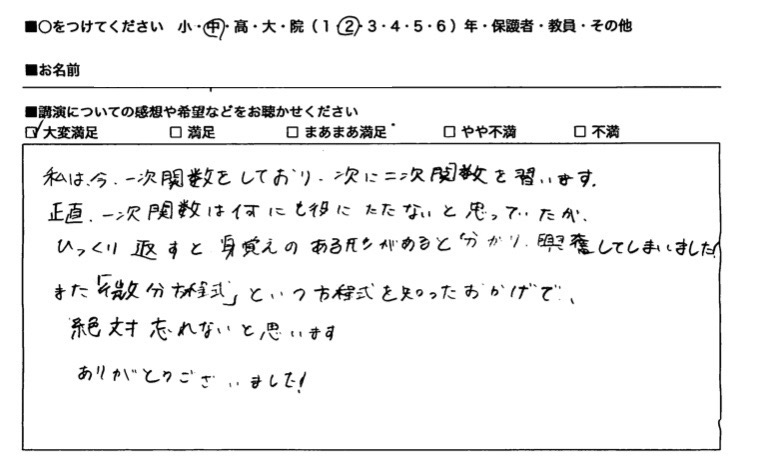 ■○をつけてください 小・中・高・大・院（1・2・3・4・5・6）年・保護者・教員・その他
■お名前
■講演についての感想や希望などをお聴かせください
☑大変満足 □満足 □まあまあ満足 □やや不満 □不満
私は、今、一次関数をしており、次に二次関数を習います。
正直、一次関数は何にも役にたたないと思っていたが、
ひっくり返すと身覚えのある形があると分かり、興奮してしまいました!
また「微分方程式」という方程式を知ったおかげで、
絶対忘れないと思います
ありがとうございました!